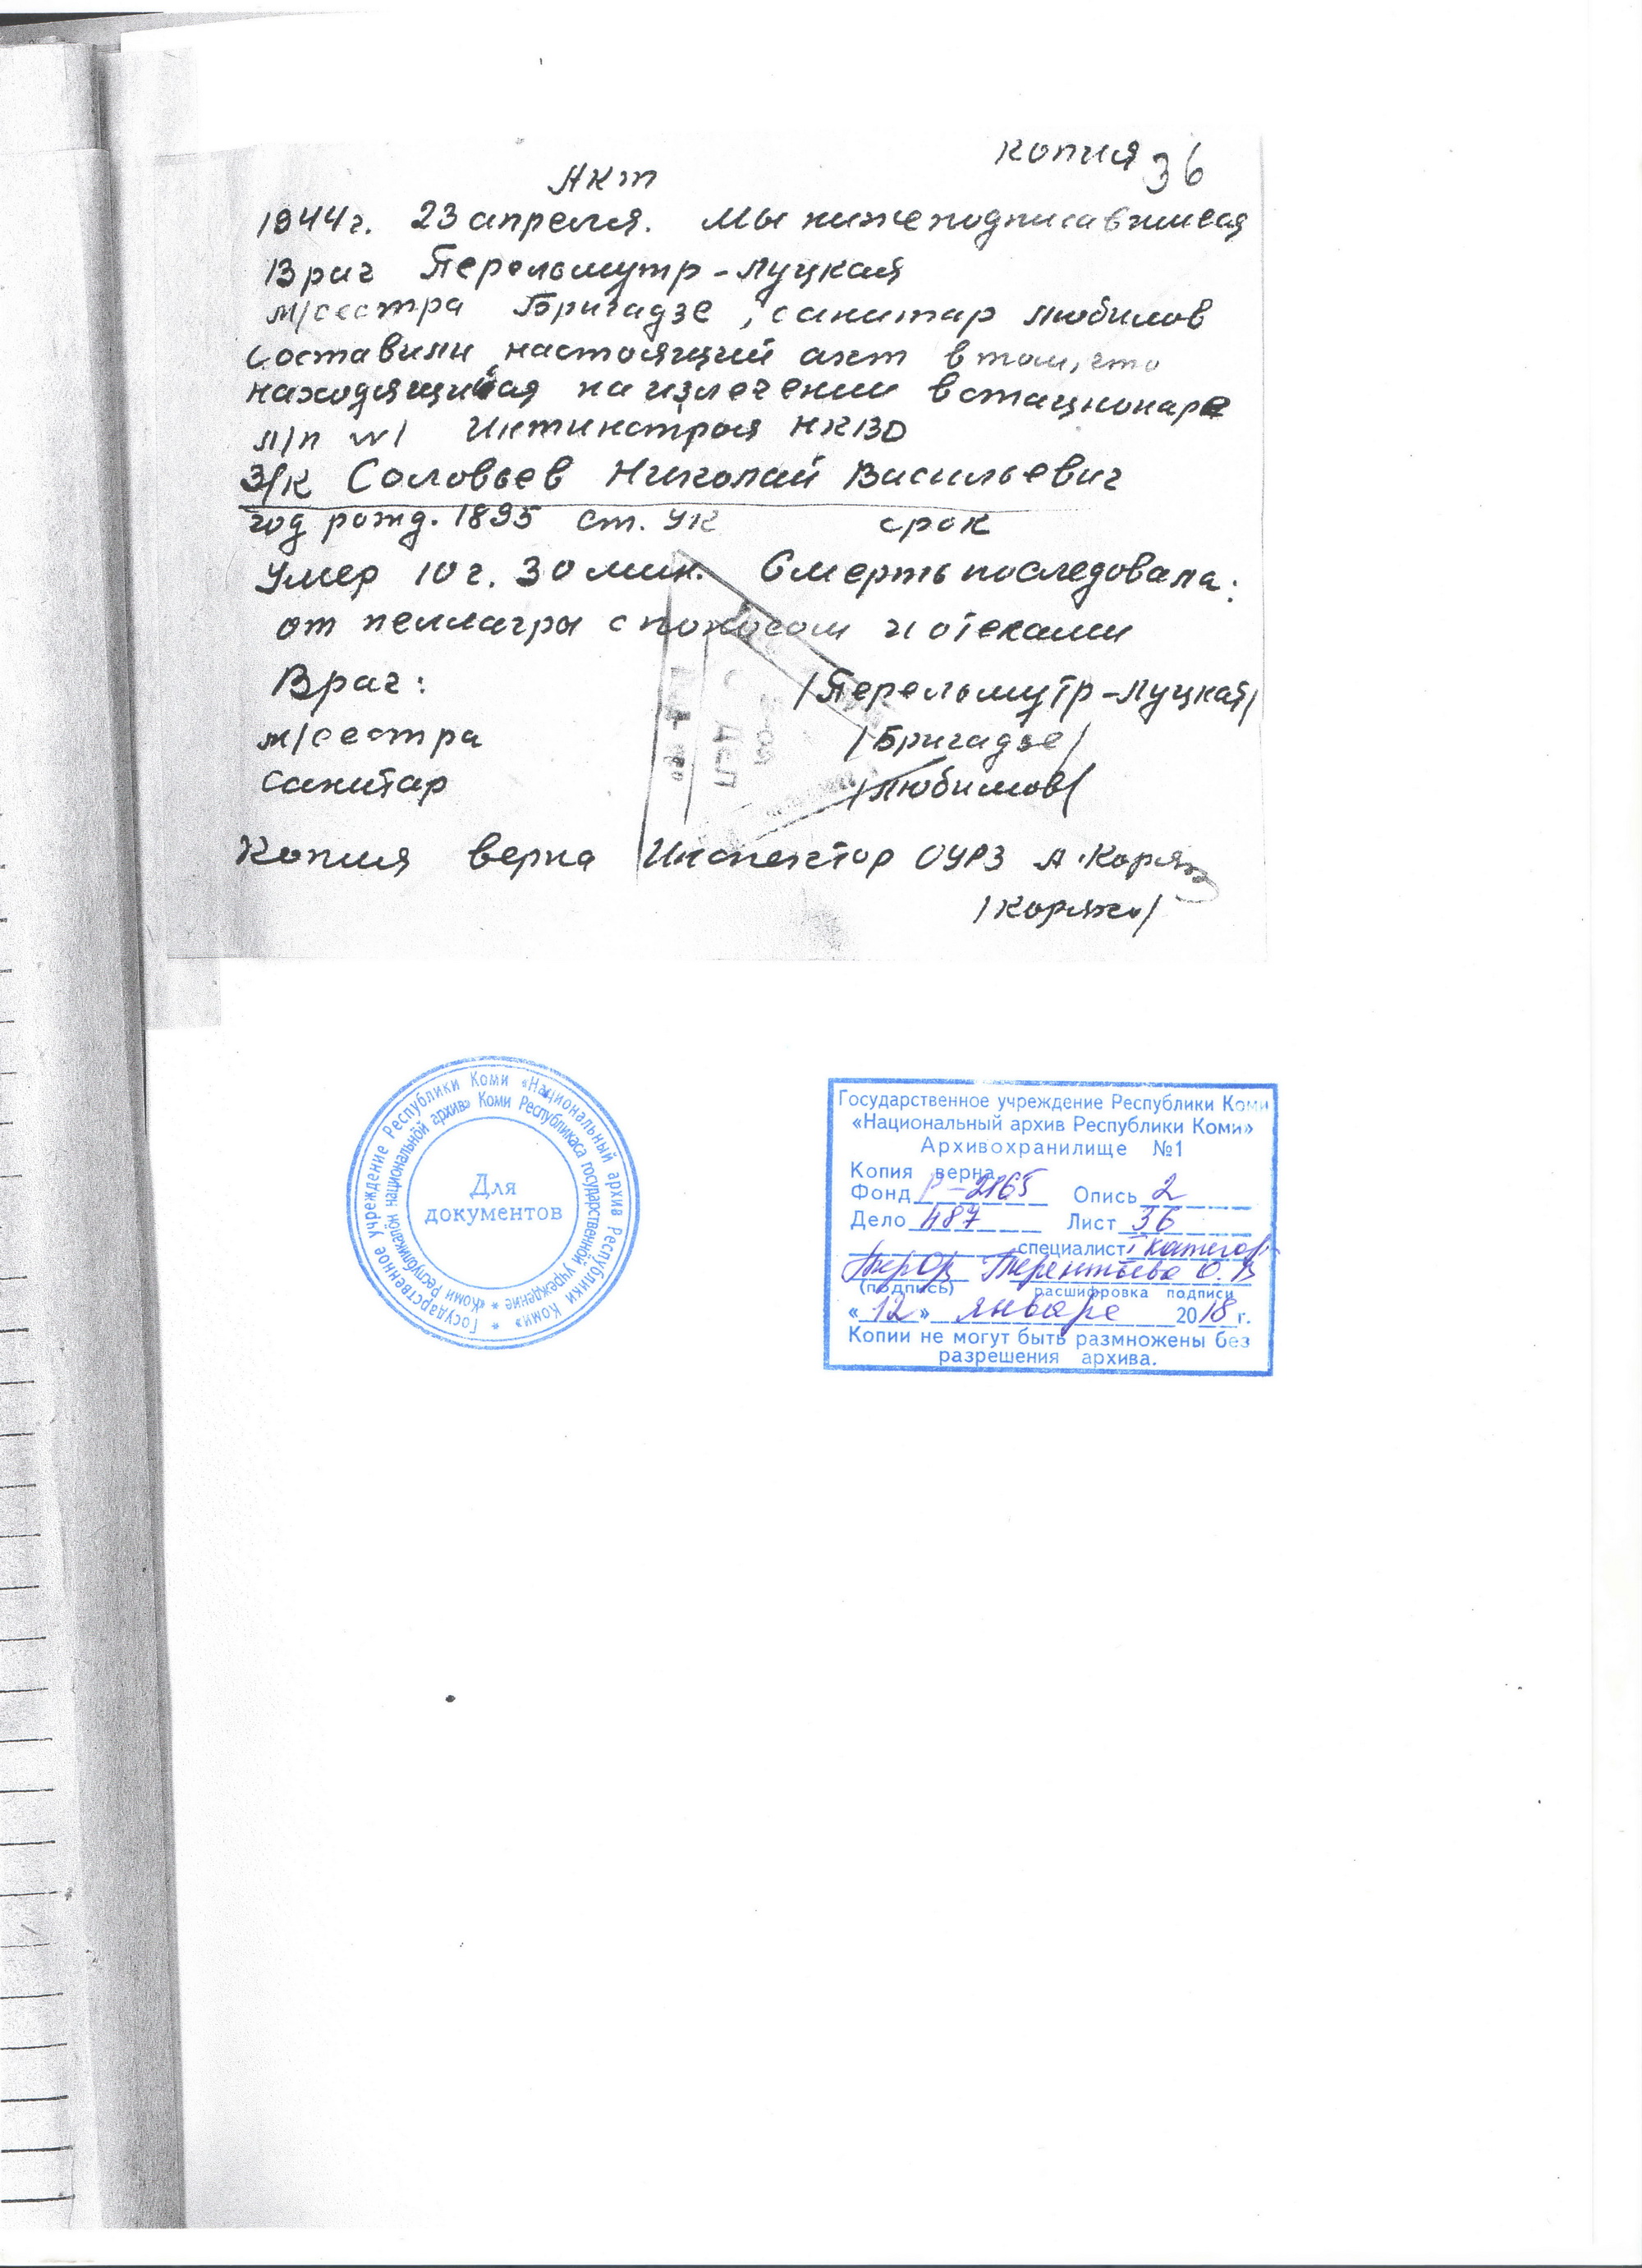 копия 36
Акт
1944г. 23 апреля. Мы нижеподписавшиеся
Врач Перельмутр-Луцкая
м/сестра Бригадзе, санитар Любимов
составили настоящий акт в том, что
находящийся на излечении в стационаре
л/п №1 Интинстроя НКВД
З/К Соловьев Николай Васильевич
год рожд. 1895 ст. УК срок
Умер 10 г. 30 мин. Смерть последовала:
от пеллагры с поносом и отеками
Врач: /Перельмутр-Луцкая/
м/сестра /Бригадзе/
санитар /Любимов/
Копия верна Инспектор ОУРЗ А. Коряк
Государственное учреждение Республики Коми «Национальный архив Республики Коми» *
«Коми Республикалӧн национальнӧй архив» Коми Республикаса государственнӧй учреждение *
Для
документов
Государственное учреждение Республики Коми
«Национальный архив Республики Коми»
Архивохранилище №1
Копия верна
Фонд Р-2165 Опись 2
Дело 487 Лист 36
специалист I категор
Терентьева О.В
(подпись) расшифровка подписи
«12» января 2018 г.
Копии не могут быть размножены без
разрешения архива.